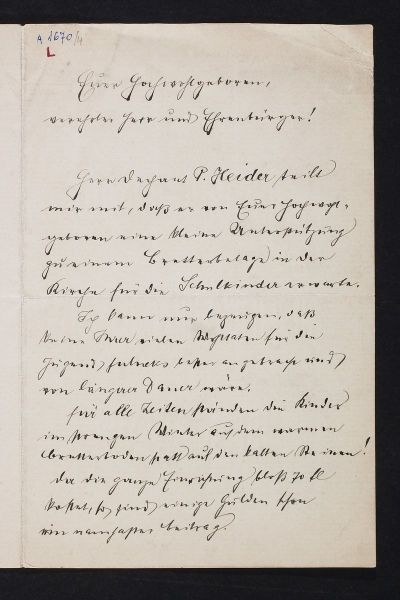 A 1670/4
L
Euer Hochwohlgeboren,
verehrter Herr und Ehrenbürger!
Herr Dechant P. Heider teilt
mir mit, daß er von Euer Hochwohl-
geboren eine kleine Unterstützung
zu einem Bretterbelage in der
Kirche für die Schulkinder erwarte.
Ich kann nur bezeugen, daß
keine Ihrer vielen Wohltaten für die
Jugend besser angebracht und
von längerer Dauer wäre.
Für alle Zeiten stünden die Kinder
im strengen Winter auf dem warmen
Bretterboden statt auf den kalten Steinen!
Da die ganze bloß 70 fl
kostet, so sind einige Gulden schon
ein namhafter Beitrag.